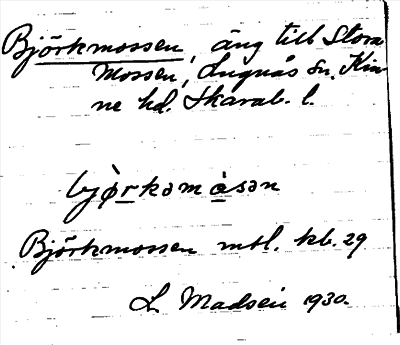 Björkmossen, äng till Stora
Mossen, Lugnås sn, Kin
ne hd. Skarab. l.
bjǫ̀rkəmåsən
Björkmossen mtl. kb. 29
L. Madsen 1930.